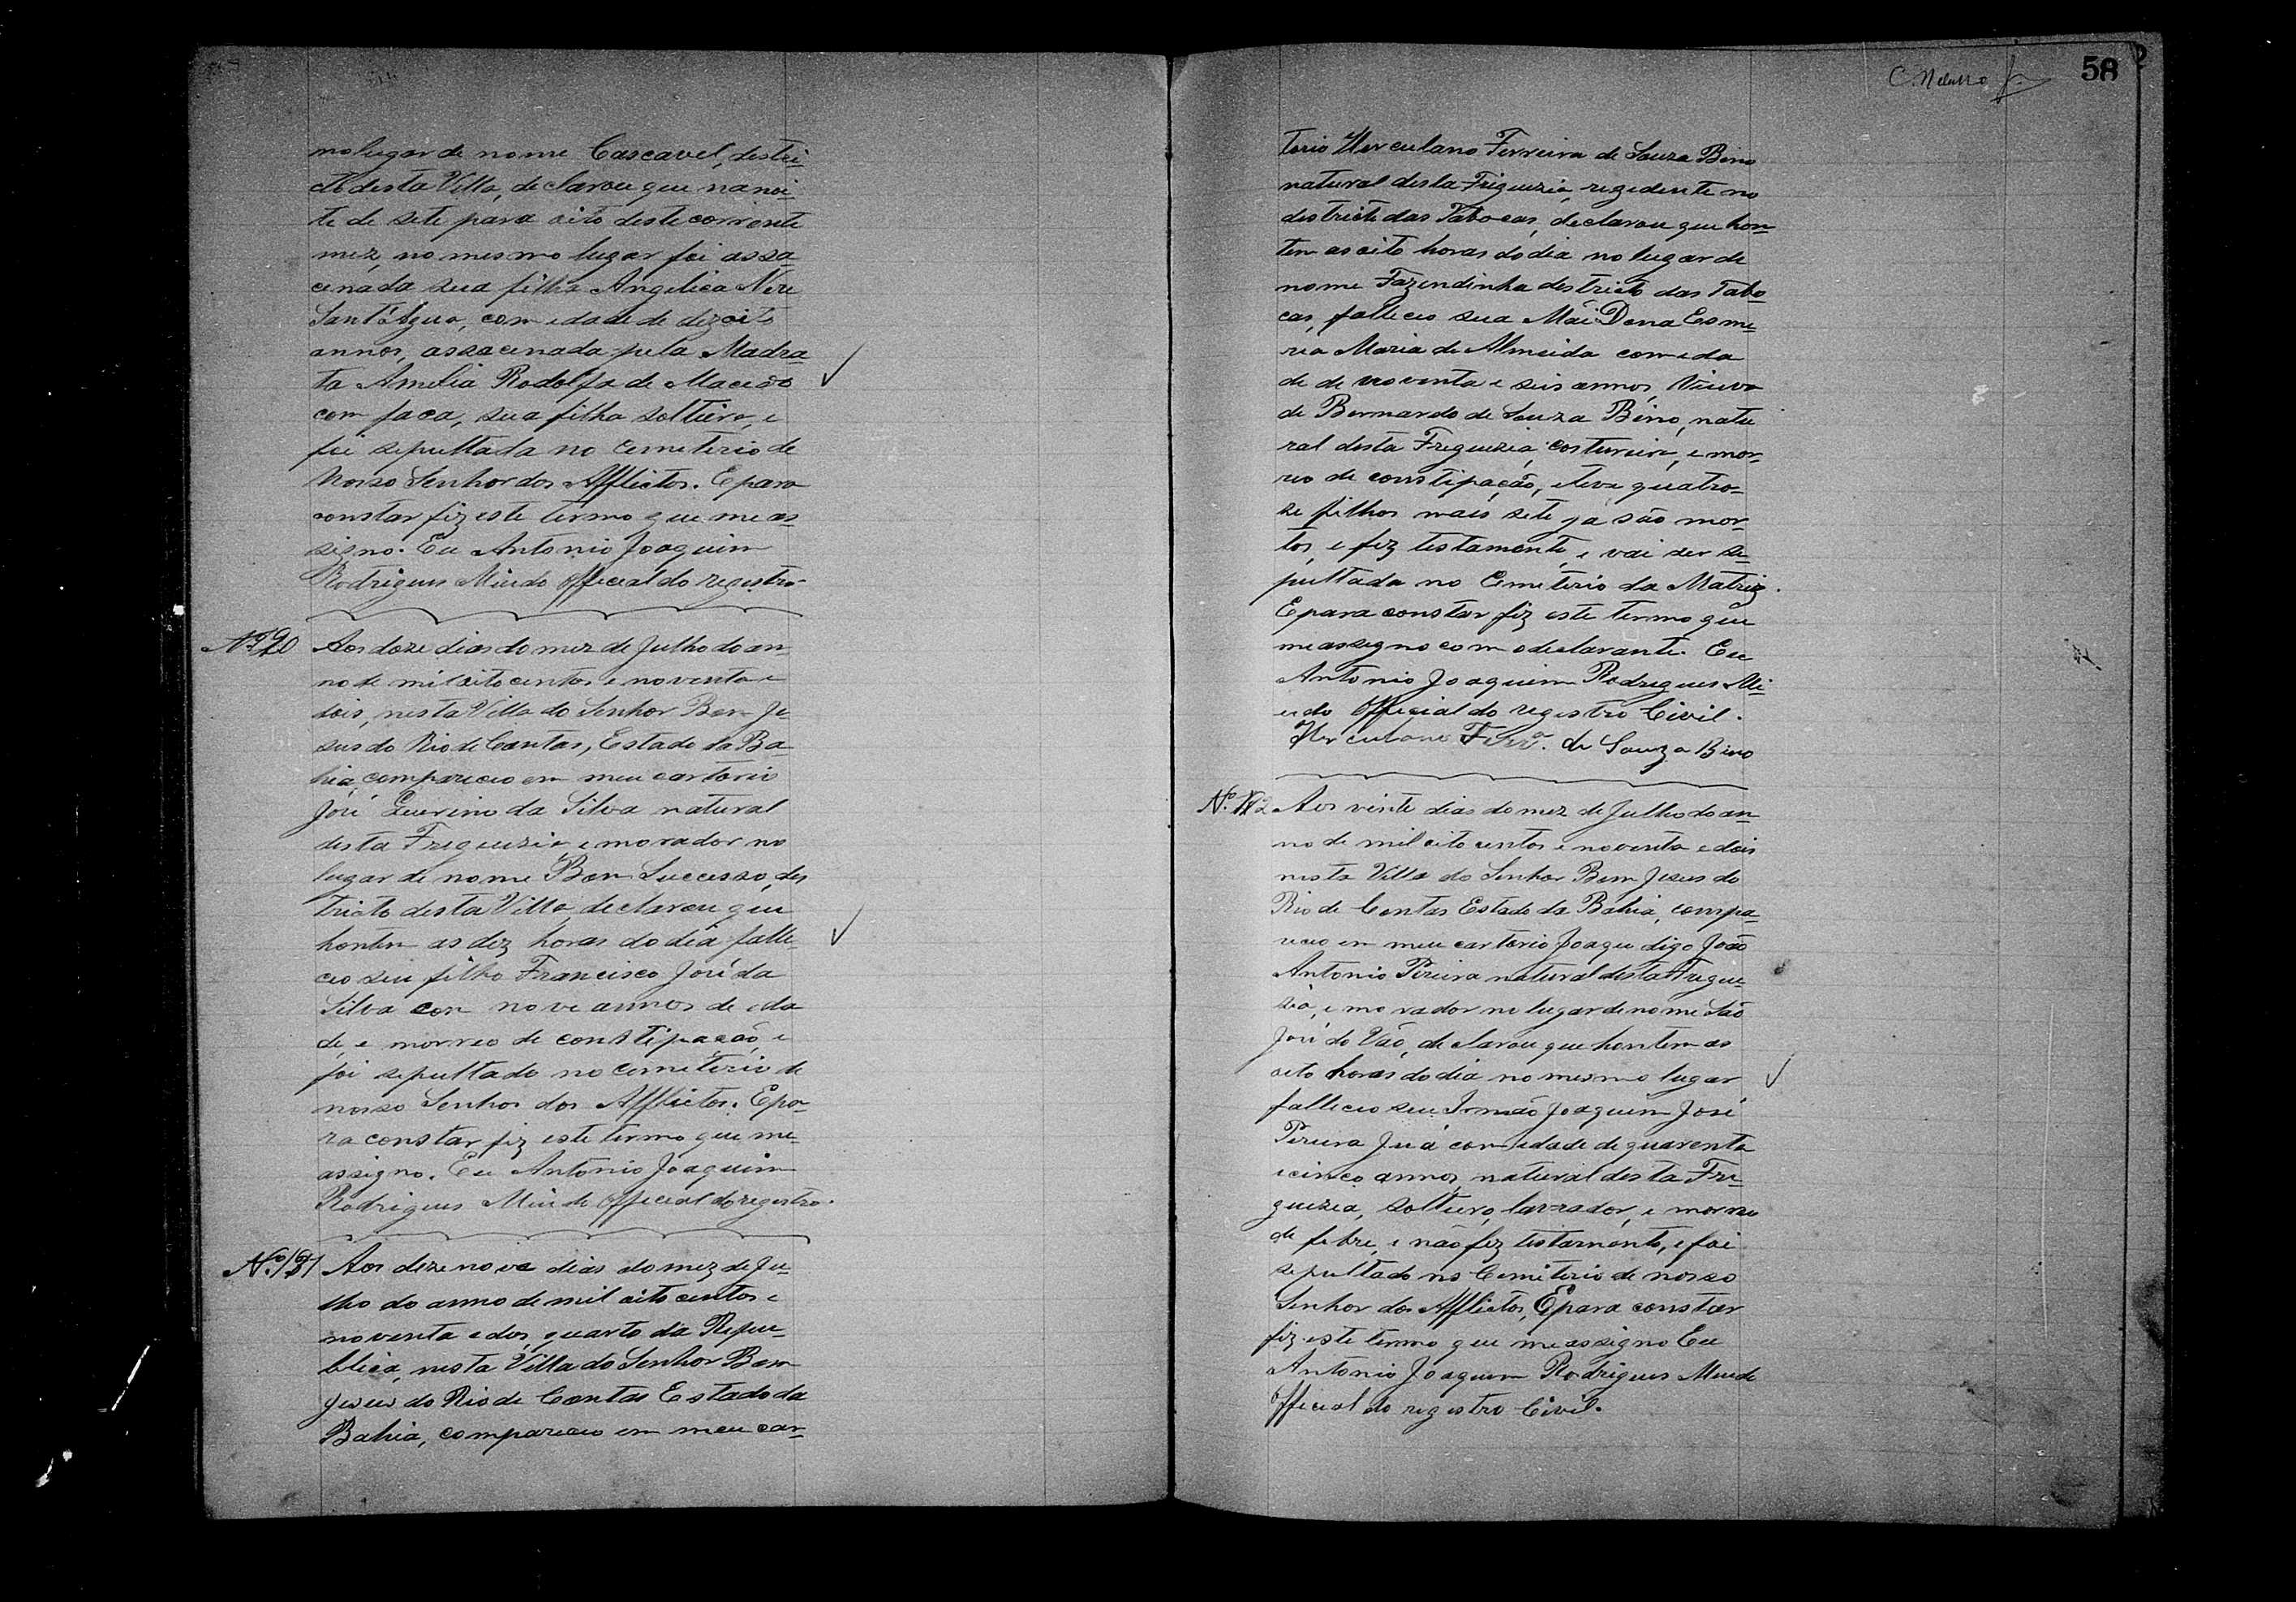 no lugar de nome Cascavel, destri-
cto desta Villa, declarou que na noi-
te de sete para oito deste corrente
mez, no mesmo lugar foi assa-
cinada sua filha Angelica Nere
Sant'Agua, com idade de dizoito
annos, assacinada pela Madra
ta Amelia Rodolfa de Macedo
com faca, sua filha solteira, e
foi sepultada no Cemeterio de
Nosso Senhor dos Afflictos. E para
constar fiz este termo que me as
signo. Eu Antonio Joaquim
Rodrigues Miudo Official do registro
Aos doze dias do mez de Julho do an-
no de mil oito centos e noventa e
dois, nesta Villa do Senhor Bom Je-
sus do Rio de Contas, Estado da Ba-
hia, compareceo em meu cartorio
José Querino da Silva natural
desta Freguezia e morador no
lugar de nome Bom Successo, des
tricto desta Villa, declarou que
hontem as dez horas do dia falle-
ceo seu filho Francisco José da
Silva com nove annos de eda
de, e morreo de constipação, e
foi sepultado no Cemeterio de
nosso Senhor dos Afflictos. E pa-
ra constar fiz este termo que me
assigno. Eu Antonio Joaquim
Rodrigues Miudo Official do registro.
Aos dizenove dias do mez de Ju-
lho do anno de mil oito centos e
noventa e dos, quarto da Repu-
blica, nesta Villa do Senhor Bom
Jesus do Rio de Contas Estado da
Bahia, compareceo em meu car-
58
torio Herculano Ferreira de Souza Bino
natural desta Friguezia, rezedente no
destricto das Tabocas, declarou que hon-
tem as oito horas do dia no lugar de
nome Fazendinha destricto das Tabo
cas, falleceo sua Mãi Dona Esme
ria Maria de Almeida com eda
de de noventa e seis annos, Viuva
de Bernardo de Souza Bino, natu
ral desta Freguezia, costureira, e mor-
reo de constipação, e teve quator-
se filhos mais sete ja são mor-
tos, e fez testamento, e vai ser se-
pultada no Cemeterio da Matriz.
E para constar fiz este termo que
me assigno com o declarante. Eu
Antonio Joaquim Rodrigues Mi-
udo Official do registro Civil.
Herculano Ferrª. de Souza Bino
Aos vinte dias do mez de Julho do an
no de mil oito centos e noventa e dois
nesta Villa do Senhor Bom Jesus do
Rio de Contas Estado da Bahia, compa-
receo em meu cartorio Joaqu digo João
Antonio Pereira natural desta Fregue-
zia, e morador no lugar de nome São
José do Vão, declarou que hontem as
oito horas do dia no mesmo lugar
falleceo seu Irmão Joaquim José
Pereira Juá com idade de quarenta
e cinco annos, natural desta Fre-
guezia, solteiro, lavrador, e morreo
de febre, e não fez testamento, e foi
sepultado no Cemiterio de nosso
Senhor dos Afflictos, E para constar
fiz este termo que me assigno Eu
Antonio Joaquim Rodrigues Miudo
Official do registro Civil.